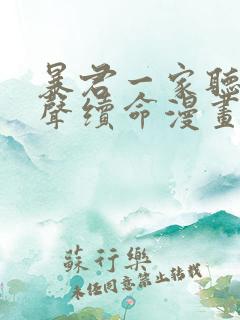 暴君一家聽
聲續命漫畫
蘇行樂
未经同意禁止转载